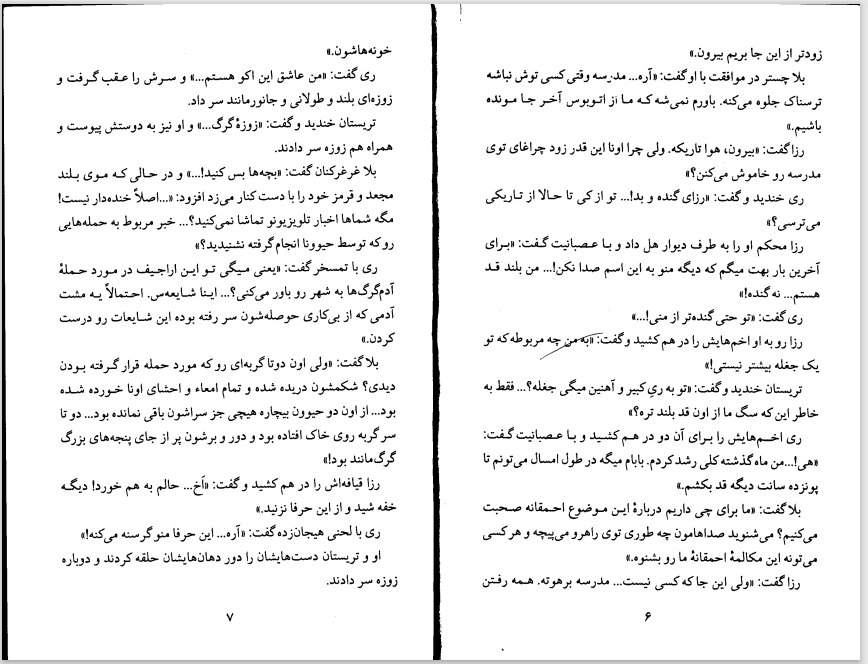 زودتر از این جا بریم بیرون.»
بلا چستر در موافقت با او گفت: «آره... مدرسه وقتی کسی توش نباشه
ترسناک جلوه می‌کنه. باورم نمی‌شه که ما از اتوبوس آخر جا مونده
باشیم.»
رزا گفت: «بیرون، هوا تاریکه. ولی چرا اونا این قدر زود چراغای توی
مدرسه رو خاموش می‌کنن؟»
ری خندید و گفت: «رزای گنده و بد!... تو از کی تا حالا از تاریکی
می‌ترسی؟»
رزا محکم او را به طرف دیوار هل داد و با عصبانیت گفت: «برای
آخرین بار بهت میگم که دیگه منو به این اسم صدا نکن!... من بلند قد
هستم... نه گنده!»
ری گفت: «تو حتی گنده‌تر از منی!...»
رزا رو به او اخم‌هایش را در هم کشید و گفت: «به من چه مربوطه که تو
یک جغله بیشتر نیستی!»
تریستان خندید و گفت: «تو به ریِ کبیر و آهنین میگی جغله؟... فقط به
خاطر این که سگ ما از اون قد بلند تره؟»
ری اخم‌هایش را برای آن دو در هم کشید و با عصبانیت گفت:
«هی!...من ماه گذشته کلی رشد کردم. بابام میگه در طول امسال می‌تونم تا
پونزده سانت دیگه قد بکشم.»
بلا گفت: «ما برای چی داریم دربارهٔ این موضوع احمقانه صحبت
می‌کنیم؟ می‌شنوید صداهامون چه طوری توی راهرو می‌پیچه و هر کسی
می‌تونه این مکالمهٔ احمقانهٔ ما رو بشنوه.»
رزا گفت: «ولی این جا که کسی نیست... مدرسه برهوته. همه رفتن
۶
خونه‌هاشون.»
ری گفت: «من عاشق این اکو هستم...» و سرش را عقب گرفت و
زوزه‌ای بلند و طولانی و جانورمانند سر داد.
تریستان خندید و گفت: «زوزهٔ گرگ...» و او نیز به دوستش پیوست و
همراه هم زوزه سر دادند.
بلا غرغرکنان گفت: «بچه‌ها بس کنید!...» و در حالی که موی بلند
مجعد و قرمز خود را با دست کنار می‌زد افزود: «...اصلاً خنده‌دار نیست!
مگه شماها اخبار تلویزیونو تماشا نمی‌کنید؟... خبر مربوط به حمله‌هایی
رو که توسط حیوونا انجام گرفته نشنیدید؟»
ری با تمسخر گفت: «یعنی میگی تو این اراجیف در مورد حملهٔ
آدم‌گرگ‌ها به شهر رو باور می‌کنی؟... اینا شایعه‌س. احتمالاً یه مشت
آدمی که از بی‌کاری حوصله‌شون سر رفته بوده این شایعات رو درست
کردن.»
بلا گفت: «ولی اون دوتا گربه‌ای رو که مورد حمله قرار گرفته بودن
دیدی؟ شکمشون دریده شده و تمام امعاء و احشای اونا خورده شده
بود... از اون دو حیوون بیچاره هیچی جز سراشون باقی نمانده بود... دو تا
سر گربه روی خاک افتاده بود و دور و برشون پر از جای پنجه‌های بزرگ
گرگ‌مانند بود!»
رزا قیافه‌اش را در هم کشید و گفت: «اَخ... حالم به هم خورد! دیگه
خفه شید و از این حرفا نزنید.»
ری با لحنی هیجان‌زده گفت: «آره... این حرفا منو گرسنه می‌کنه!»
او و تریستان دست‌هایشان را دور دهان‌هایشان حلقه کردند و دوباره
زوزه سر دادند.
۷